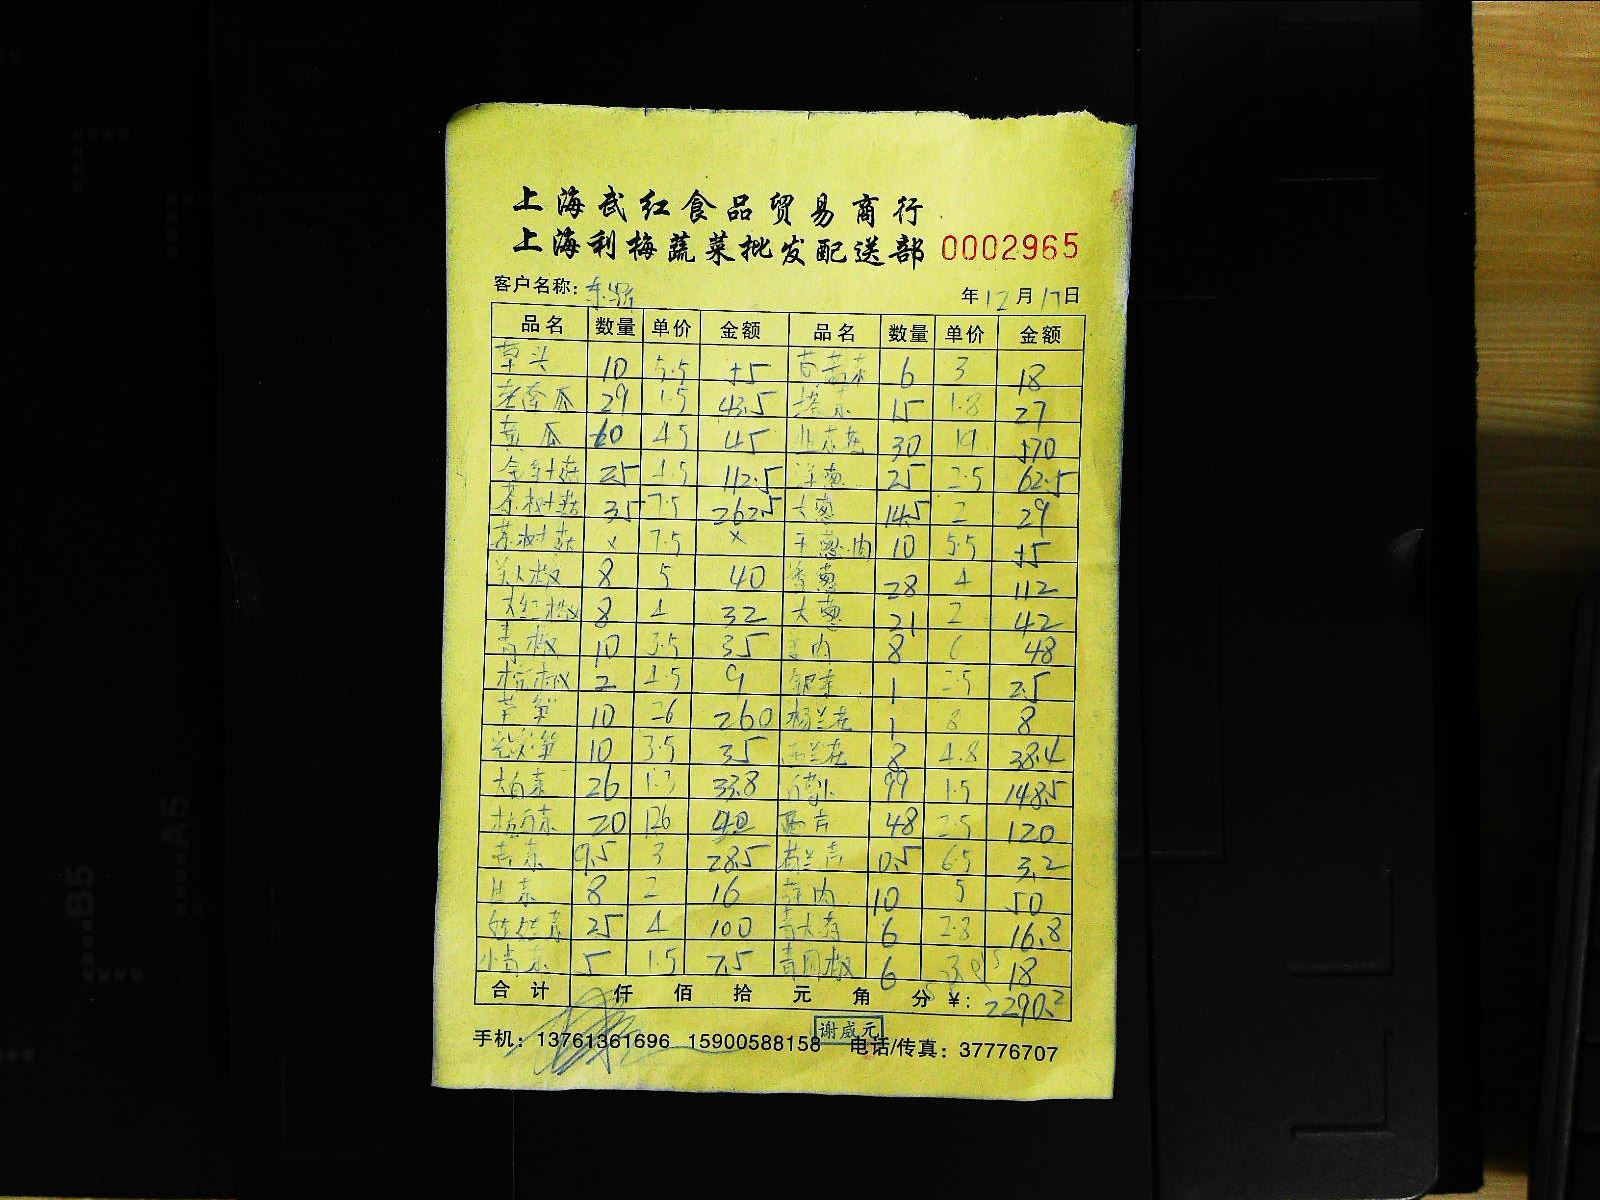 上海武红食品贸易商行
上海利梅蔬菜批发配送部 0002965
客户名称: 年12月17日
品名 数量 单价 金额 品名 数量 单价 金额
草头 10 5.5 55 6 3 18
老南瓜 29 1.5 43.5 塔菜 15 1.8 27
黄瓜 10 4.5 45 韭菜花 30 19 570
金针菇 25 4.5 112.5 洋葱 25 2.5 62.5
茶树菇 35 7.5 262.5 大葱 14.5 2 29
茶树菇 × 7.5 × 干葱肉 10 5.5 55
美人椒 8 5 40 香葱 28 4 112
大红椒 8 4 32 大葱 21 2 42
青椒 10 3.5 35 8 6 48
杭椒 2 4.5 9 1 2.5 2.5
芦笋 10 26 260 1 8 8
莴笋 10 3.5 35 西兰花 8 4.8 38.4
大白菜 26 1.3 33.8 白萝卜 99 1.5 148.5
20 西芹 48 2.5 120
9.5 3 28.5 荷兰芹 0.5 6.5 3.2
8 2 16 10 5 50
娃娃菜 25 4 100 6 2.8 16.8
小青菜 5 1.5 7.5 青圆椒 6 3 18
合计 仟 佰 拾 元 角 分 ¥: 2290.2
谢咸元
手机: 13761361696 15900588158 电话/传真: 37776707